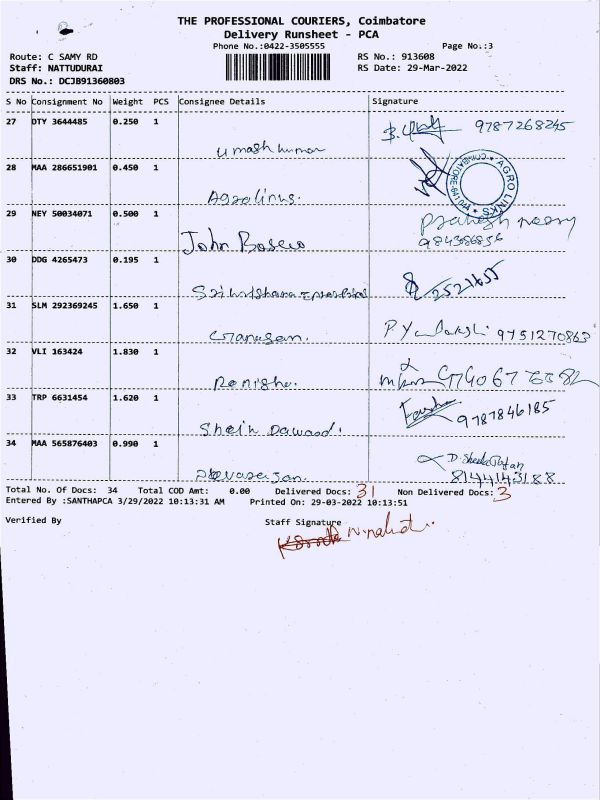 THE PROFESSIONAL COURIERS, Coimbatore
Delivery Runsheet - PCA
Phone No.:0422-3505555 Page No.:3
Route: C SAMY RD RS No.: 913608
Staff: NATTUDURAI RS Date: 29-Mar-2022
DRS No.: DCJB91360803
S No Consignment No Weight PCS Consignee Details Signature
27 DTY 3644485 0.250 1
umashkumar 9787268245
28 MAA 286651901 0.450 1
Agrolinks.
AGRO LINKS
29 NEY 50034071 0.500 1
John Bosco
30 DDG 4265473 0.195 1
31 SLM 292369245 1.650 1
Ganesan. 9751270863
32 VLI 163424 1.830 1
33 TRP 6631454 1.620 1
Sheik Dawood. 9787846185
34 MAA 565876403 0.990 1
8144143188
Total No. Of Docs: 34 Total COD Amt: 0.00 Delivered Docs: 31 Non Delivered Docs: 3
Entered By :SANTHAPCA 3/29/2022 10:13:31 AM Printed On: 29-03-2022 10:13:51
Verified By Staff Signature